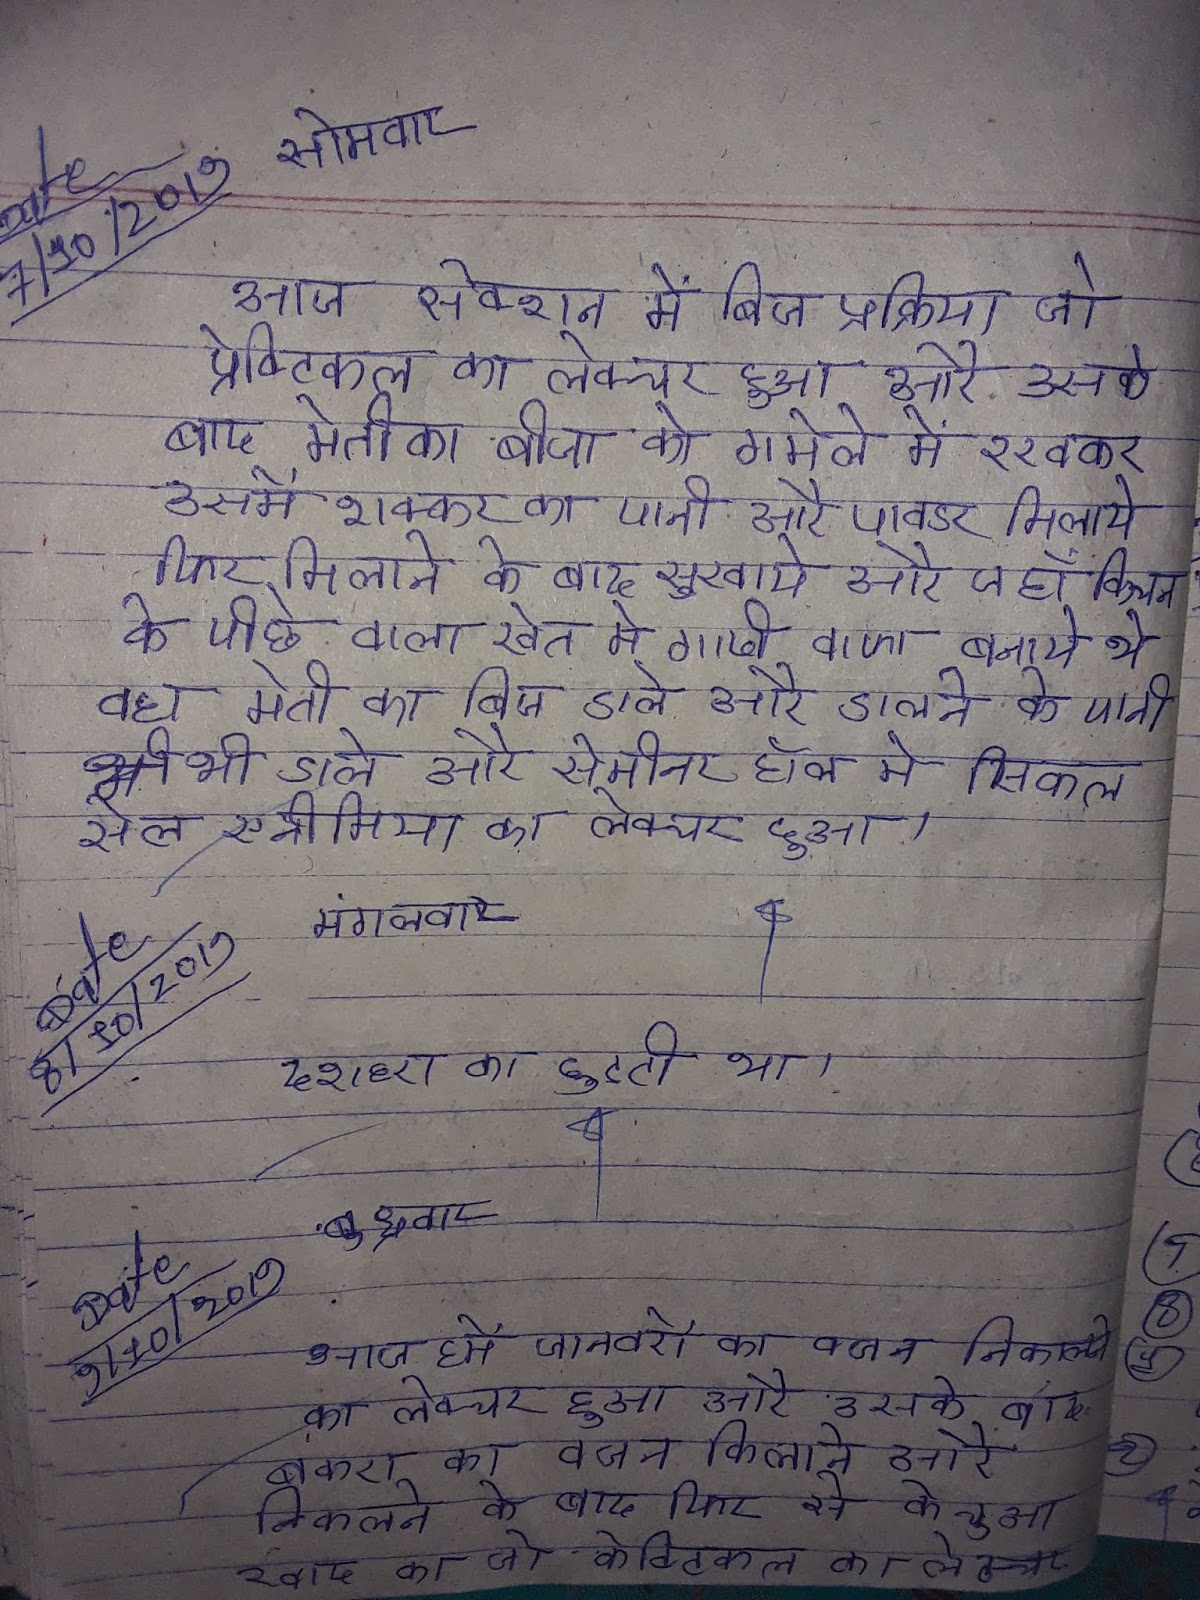 Date
7/10/2019
सोमवार
आज सेक्शन में बिज प्रक्रिया जो
प्रेक्टिकल का लेक्चर हुआ और उसके
बाद मेती का बीजा को गमेले में रखकर
उसमें शक्कर का पानी और पावडर मिलाये
फिर मिलाने के बाद सुखाये और जहाँ किचन
के पीछे वाला खेत मे गादी वाफा बनाये थे
वहा मेती का बिज डाले और डालने के पानी
भी डाले और सेमीनर हॉल मे सिकल
सेल एनीमिया का लेक्चर हुआ।
Date
8/10/2019
मंगलवार
दशहरा का छुटटी था।
Date
9/10/2019
बुध्रवार
आज हमें जानवरों का वजन निकालने
का लेक्चर हुआ और उसके बाद
बकरा का वजन किलाने और
निकलने के बाद फिर से केचुआ
खाद का जो केक्टिकल का लेक्चर